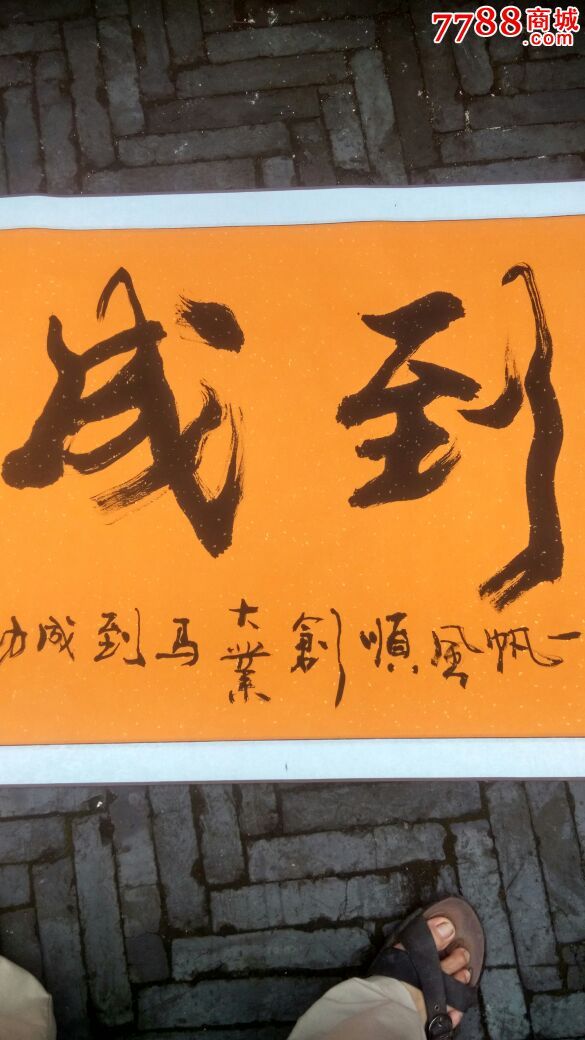 7788商城
.com
到成
一帆風順創大業馬到成功